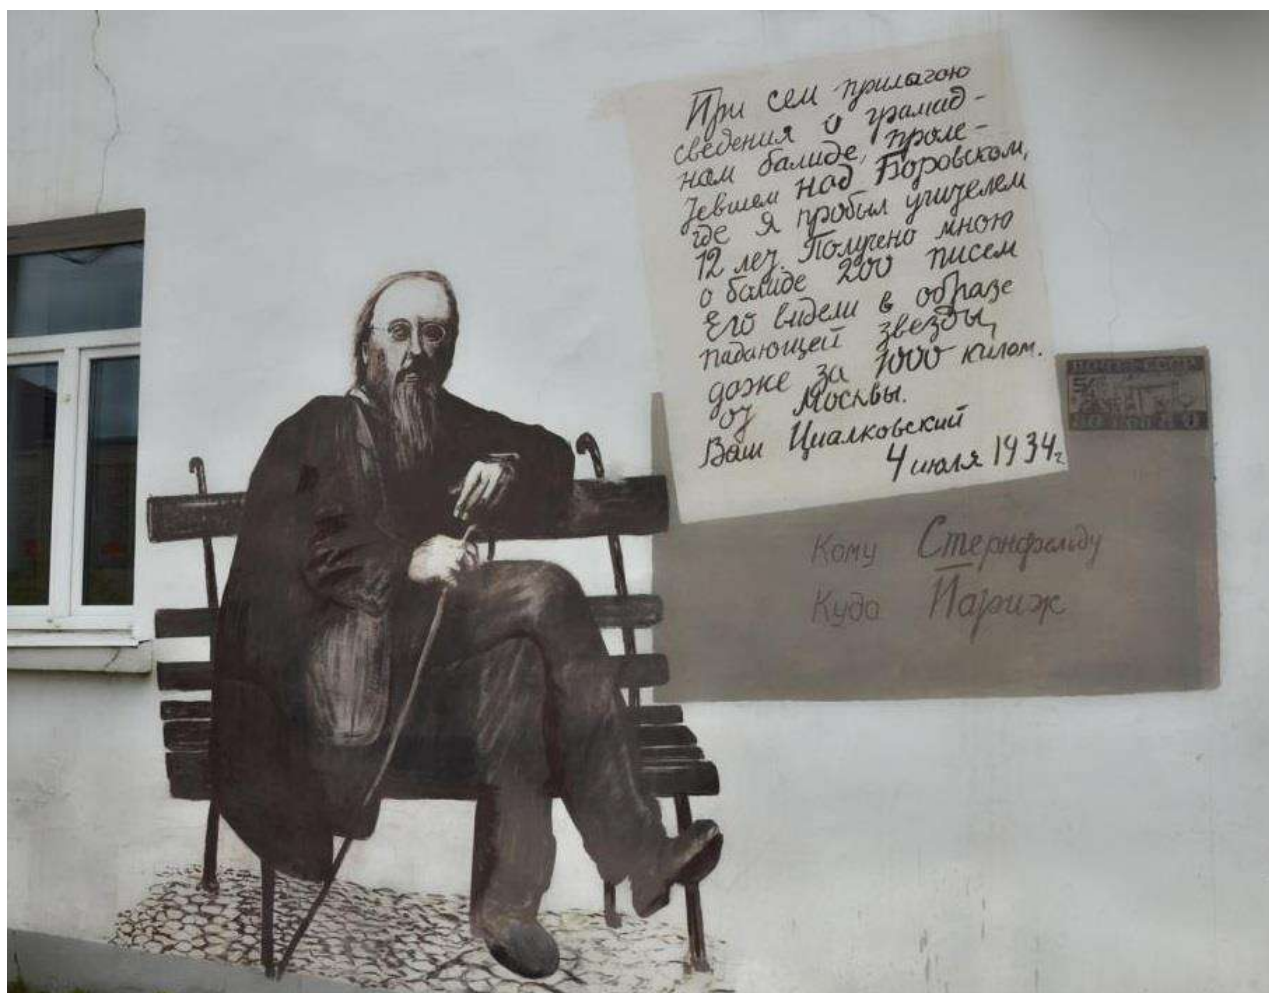 При сем прилагаю
сведения о грамад-
нам балиде, проле-
тевшем над Боровском,
где я пробыл учителем
12 лет. Получено мною
о балиде 200 писем
Его видели в образе
падающей звезды,
даже за 1000 килом.
от Москвы.
Ваш Циалковский
4 июля 1934г.
ПОЧТА СССР
Кому Стернфельду
Куда Париж